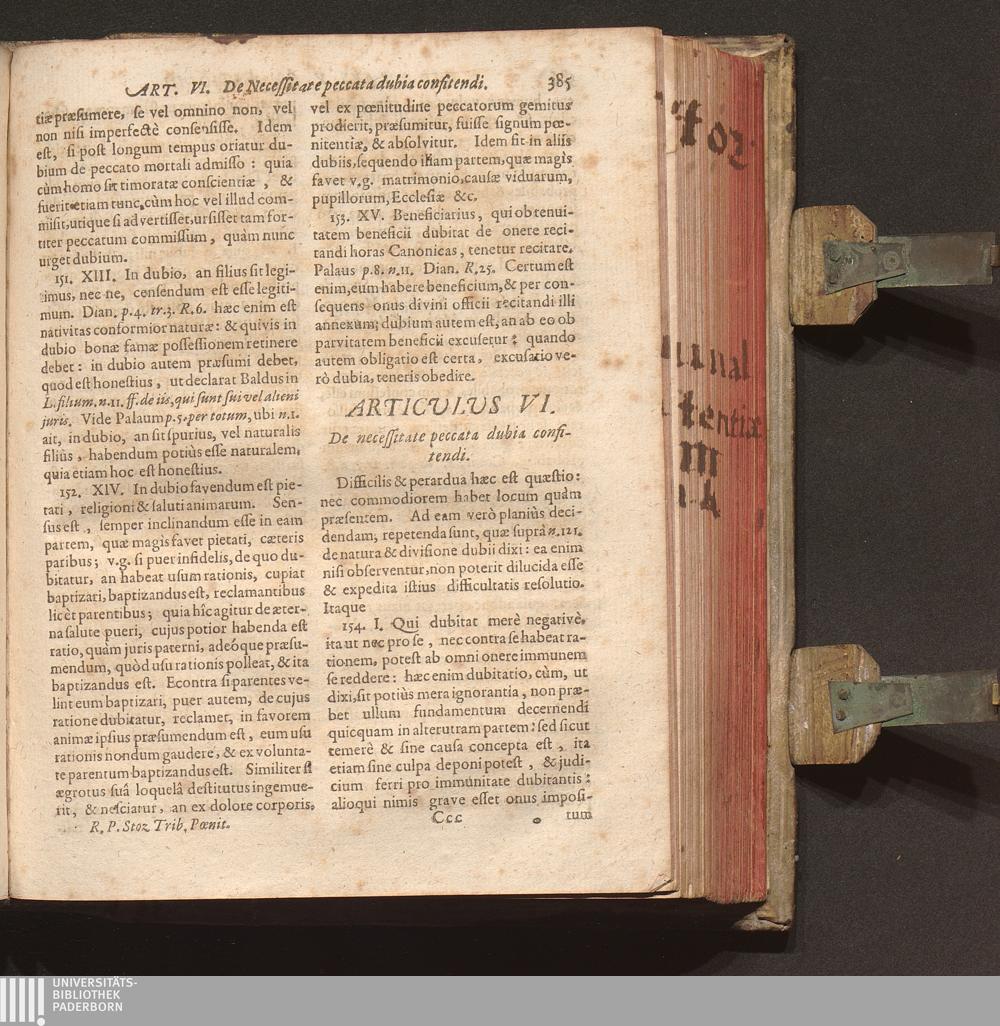 ART. VI. De Necessitate peccata dubia confitendi. 385
tiæ præsumere, se vel omnino non, vel
non nisi imperfectè consensisse. Idem
est, si post longum tempus oriatur du-
bium de peccato mortali admisso : quia
cùm homo sit timoratæ conscientiæ , &
fuerit etiam tunc, cùm hoc vel illud com-
misit, utique si advertisset, ursisset tam for-
titer peccatum commissum , quàm nunc
urget dubium.
151. XIII. In dubio, an filius sit legi-
timus, nec ne, censendum est esse legiti-
mum. Dian. p.4. tr.3. R.6. hæc enim est
nativitas conformior naturæ : & quivis in
dubio bonæ famæ possessionem retinere
debet : in dubio autem præsumi debet,
quod est honestius , ut declarat Baldus in
L. filium. n.11. ff. de iis, qui sunt sui vel alieni
juris. Vide Palaum p.5. per totum, ubi n.1.
ait, in dubio, an sit spurius, vel naturalis
filius , habendum potiùs esse naturalem,
quia etiam hoc est honestius.
152. XIV. In dubio favendum est pie-
tati , religioni & saluti animarum. Sen-
sus est , semper inclinandum esse in eam
partem, quæ magis favet pietati, cæteris
paribus ; v.g. si puer infidelis, de quo du-
bitatur, an habeat usum rationis, cupiat
baptizari, baptizandus est, reclamantibus
licèt parentibus ; quia hîc agitur de æter-
na salute pueri, cujus potior habenda est
ratio, quàm juris paterni, adeóque præsu-
mendum, quòd usu rationis polleat, & ita
baptizandus est. Econtra si parentes ve-
lint eum baptizari, puer autem, de cujus
ratione dubitatur, reclamet, in favorem
animæ ipsius præsumendum est , eum usu
rationis nondum gaudere, & ex volunta-
te parentum baptizandus est. Similiter si
ægrotus suâ loquelâ destitutus ingemue-
rit, & nesciatur, an ex dolore corporis,
R. P. Stoz Trib. Pœnit.
vel ex pœnitudine peccatorum gemitus
prodierit, præsumitur, fuisse signum pœ-
nitentiæ, & absolvitur. Idem fit in aliis
dubiis, sequendo illam partem, quæ magis
favet v.g. matrimonio, causæ viduarum,
pupillorum, Ecclesiæ &c.
153. XV. Beneficiarius , qui ob tenui-
tatem beneficii dubitat de onere reci-
tandi horas Canonicas , tenetur recitare.
Palaus p.8. n.11. Dian. R.25. Certum est
enim, eum habere beneficium, & per con-
sequens onus divini officii recitandi illi
annexum; dubium autem est, an ab eo ob
parvitatem beneficii excusetur : quando
autem obligatio est certa , excusatio ve-
rò dubia, teneris obedire.
ARTICULUS VI.
De necessitate peccata dubia confi-
tendi.
Difficilis & perardua hæc est quæstio:
nec commodiorem habet locum quàm
præsentem. Ad eam verò planiùs deci-
dendam, repetenda sunt, quæ suprà n.121.
de natura & divisione dubii dixi : ea enim
nisi observentur, non poterit dilucida esse
& expedita istius difficultatis resolutio.
Itaque
154. I. Qui dubitat merè negativè,
ita ut nec pro se , nec contra se habeat ra-
tionem, potest ab omni onere immunem
se reddere : hæc enim dubitatio, cùm, ut
dixi, sit potiùs mera ignorantia , non præ-
bet ullum fundamentum decernendi
quicquam in alterutram partem : sed sicut
temerè & sine causa concepta est , ita
etiam sine culpa deponi potest , & judi-
cium ferri pro immunitate dubitantis :
alioqui nimis grave esset onus imposi-
Ccc tum
UNIVERSITÄTS-
BIBLIOTHEK
PADERBORN